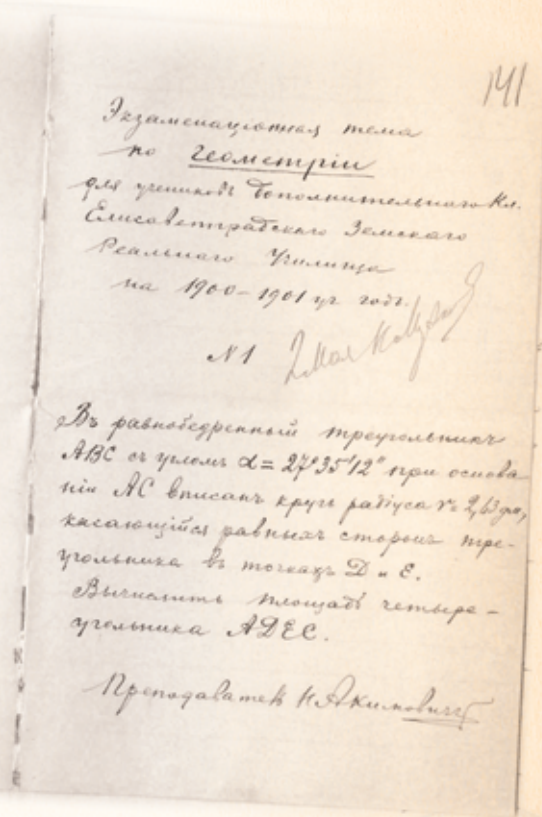 141
Экзаменаціонная тема
по геометріи
для учениковъ дополнительнаго Кл.
Елисаветградскаго Земскаго
Реальнаго Училища
на 1900-1901 уч. годъ.
№ 1
Въ равнобедренный треугольникъ
ABC съ угломъ α = 27°35'12" при основа-
ніи AC вписанъ кругъ радіуса r = 2,63 дм,
касающійся равныхъ сторонъ тре-
угольника въ точкахъ D и E.
Вычислить площадь четыре-
угольника ADEC.
Преподаватель Н Акимовичъ